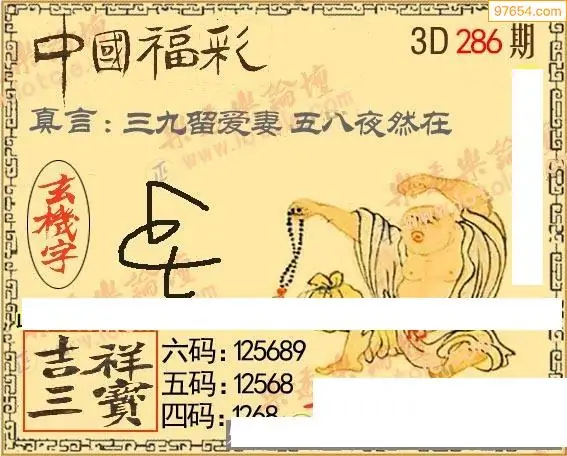 97654.com
中國福彩
3D 286 期
真言：三九留爱妻 五八夜然在
玄機字
吉祥三寶
六码：125689
五码：12568
四码：1268